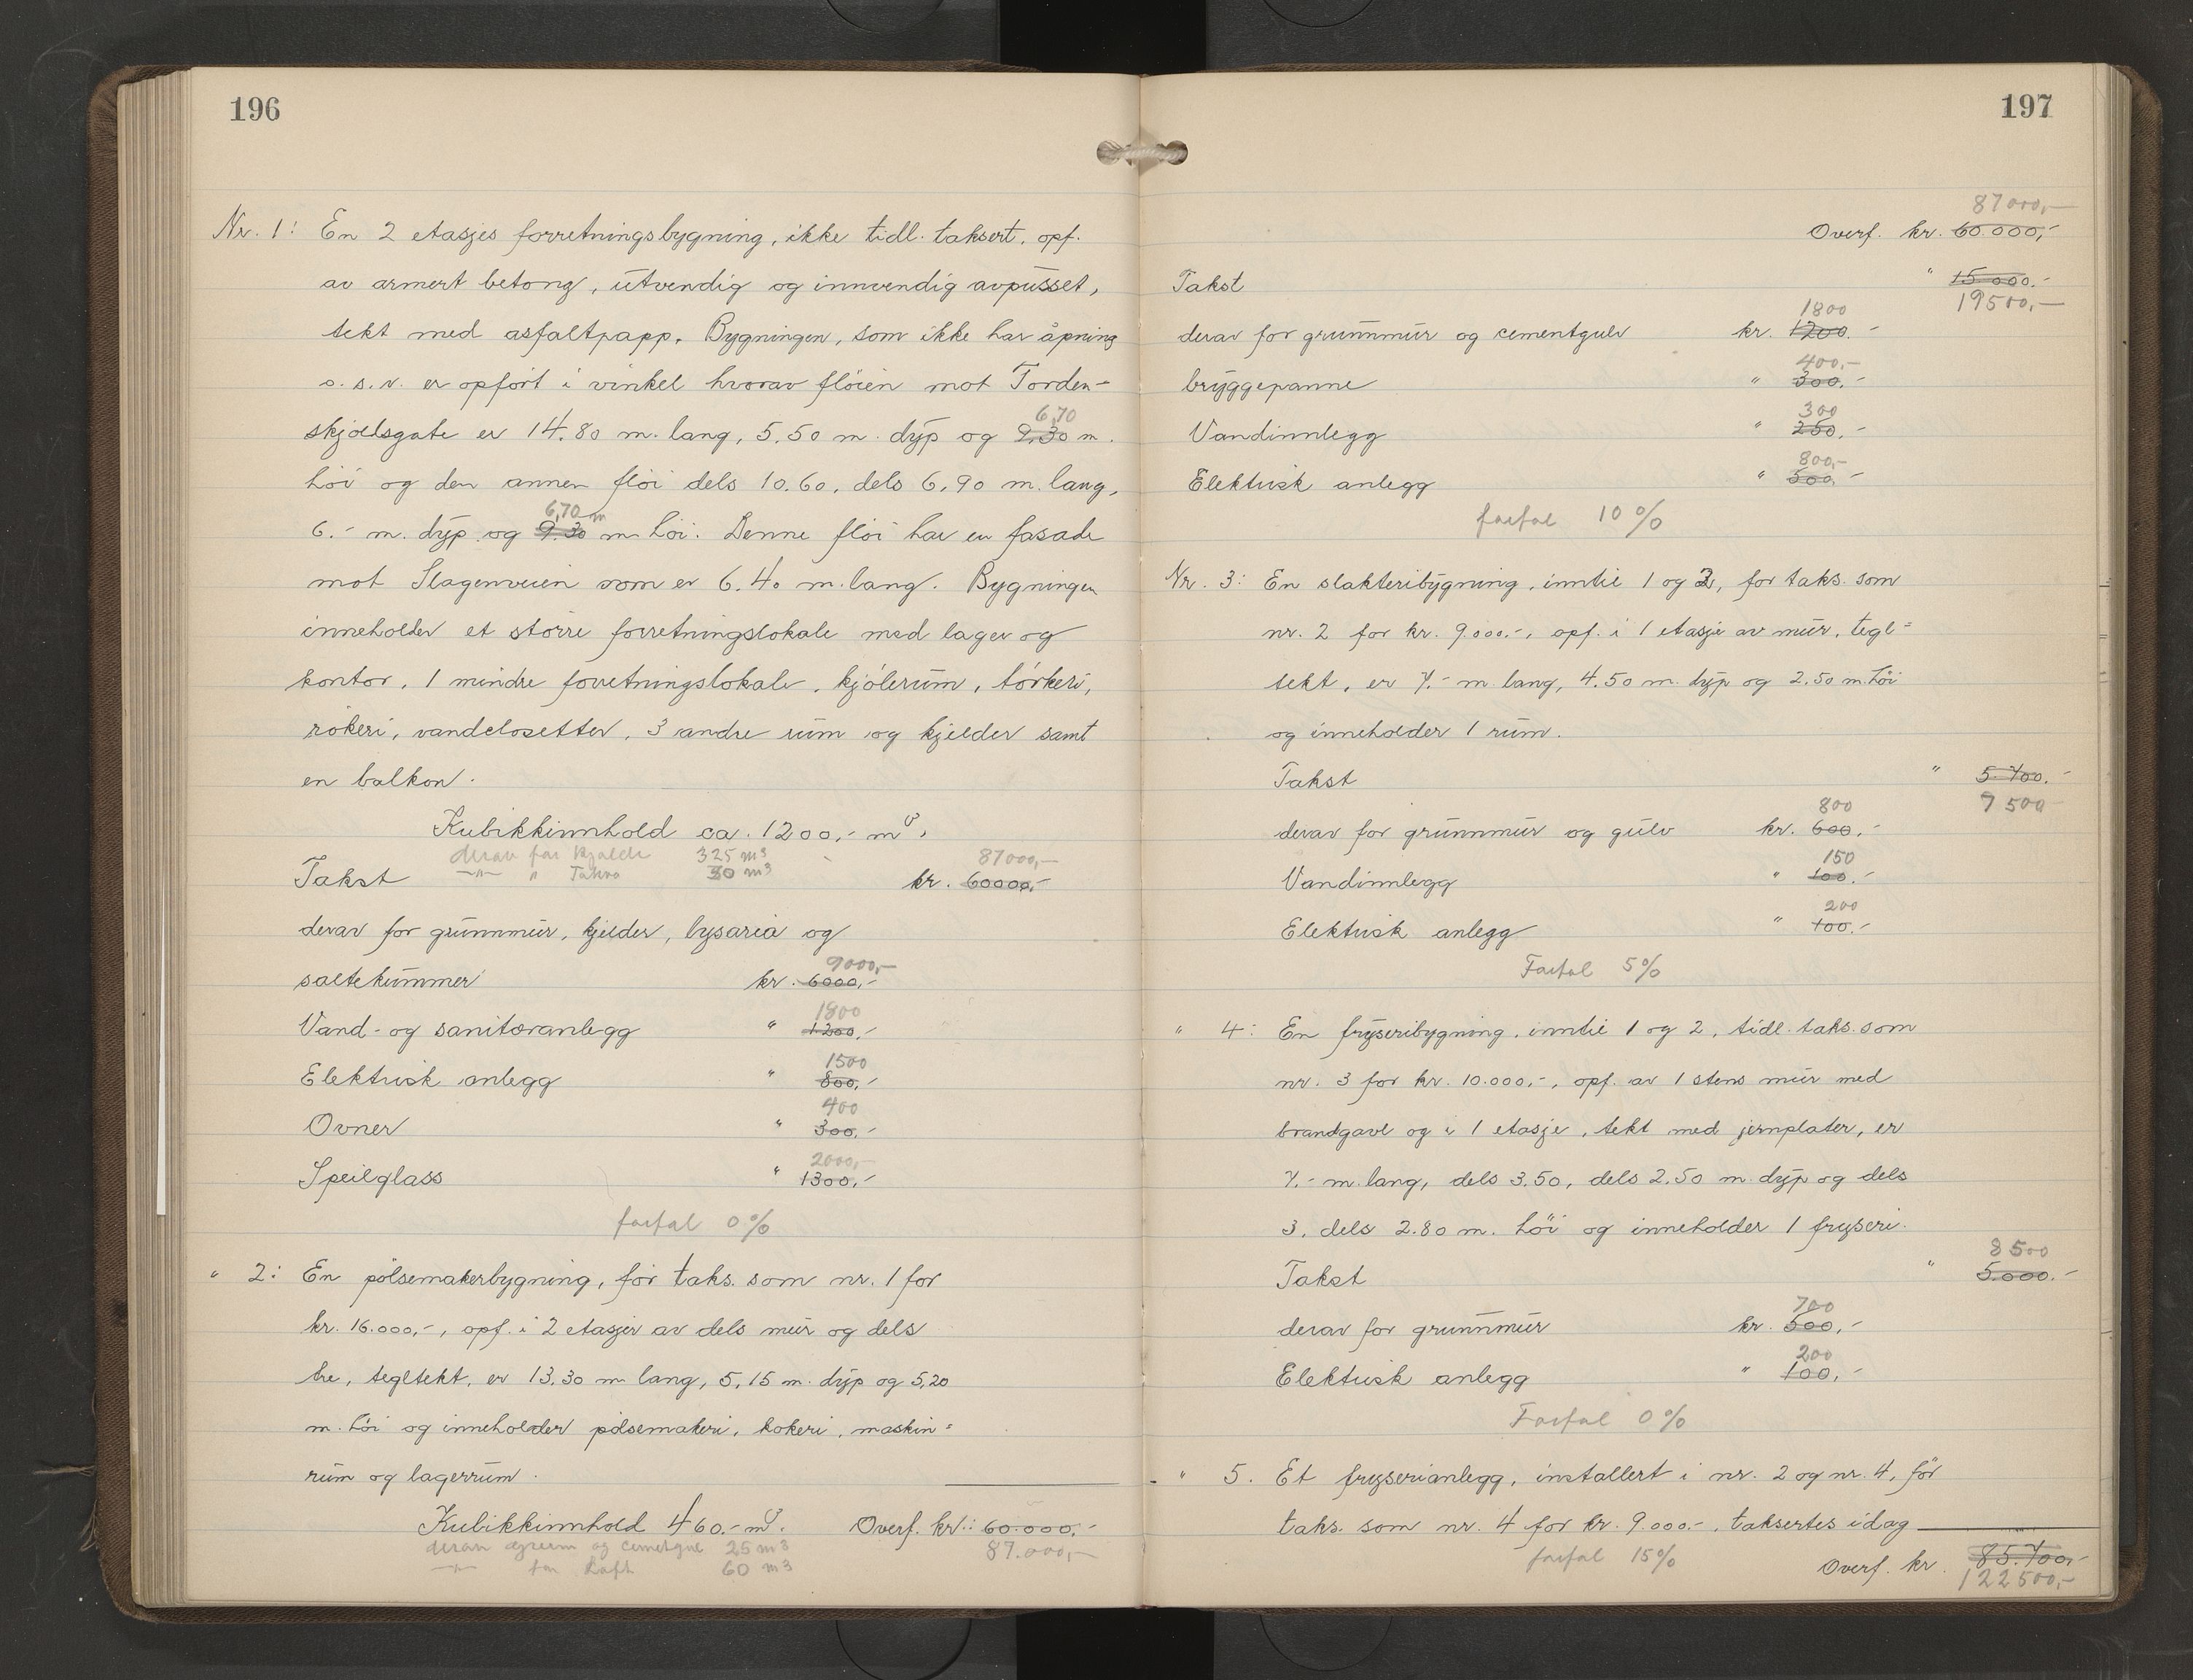 196
Nr. 1: En 2 etasjes forretningsbygning, ikke tidl. taksert, opf.
av armert betong, utvendig og innvendig avpusset,
tekt med asfaltpapp. Bygningen, som ikke har åpning
o.s.v. er opført i vinkel hvorav fløien mot Torden-
6,70
skjoldsgate er 14.80 m. lang, 5.50 m. dyp og 9.30 m.
høi og den annen fløi dels 10.60, dels 6.90 m. lang,
6,70 m
6.- m. dyp og 9.30 m høi. Denne fløi har en fasade
mot Slagenveien som er 6.40 m. lang. Bygningen
inneholder et større forretningslokale med lager og
kontor, 1 mindre forretningslokale, kjølerum, tørkeri,
røkeri, vandclosetter, 3 andre rum og kjelder samt
en balkon.
Kubikkinnhold ca. 1200,- m3.
derav for kjelder 325 m3 87000,-
-"- " 30 m3
Takst kr. 60000,-
derav for grunnmur, kjelder, lysaria og
9000,-
saltekummer kr. 6000,-
1800
Vand- og sanitæranlegg " 1200,-
1500
Elektrisk anlegg " 800,-
400
Ovner " 300,-
2000,-
Speilglass " 1300,-
forfal 0%
" 2: En pølsemakerbygning, før taks. som nr. 1 for
kr. 16.000,-, opf. i 2 etasjer av dels mur og dels
tre, tegltekt, er 13.30 m lang, 5,15 m. dyp og 5,20
m. høi og inneholder pølsemakeri, kokeri, maskin=
rum og lagerrum.
Kubikkinnhold 460.- m3. Overf. kr.: 60.000,-
derav og cementgul 25 m3 87.000,-
-"- for Loft 60 m3
197
87000,-
Overf. kr. 60.000,-
Takst " 15000.-
19500,-
1800
derav for grunnmur og cementgulv kr. 1200.-
400,-
bryggepanne " 300.-
300
Vandinnlegg " 250.-
800,-
Elektrisk anlegg " 500,-
forfal 10%
Nr. 3: En slakteribygning, inntil 1 og 2, før taks. som
nr. 2 for kr. 9.000.-, opf. i 1 etasje av mur, tegl=
tekt, er 7.- m. lang, 4.50 m. dyp og 2.50 m. høi
og inneholder 1 rum.
Takst " 5.700.-
7500
800
derav for grunnmur og gulv kr. 600.-
150
Vandinnlegg " 100.-
200
Elektrisk anlegg " 100.-
Forfal 5%
" 4: En fryseribygning, inntil 1 og 2, tidl. taks. som
nr. 3 for kr. 10.000,-, opf. av 1 stens mur med
brandgavl og i 1 etasje, tekt med jernplater, er
7.- m. lang, dels 3.50, dels 2.50 m. dyp og dels
3, dels 2.80 m. høi og inneholder 1 fryseri.
8500
Takst " 5.000.-
700
derav for grunnmur kr. 500,-
200
Elektrisk anlegg " 100,-
Forfal 0%
" 5. Et fryserianlegg, installert i nr. 2 og nr. 4, før
taks. som nr. 4 for kr. 9.000.-, taksertes idag
forfal 15% Overf. kr. 85.700,-
122500,-